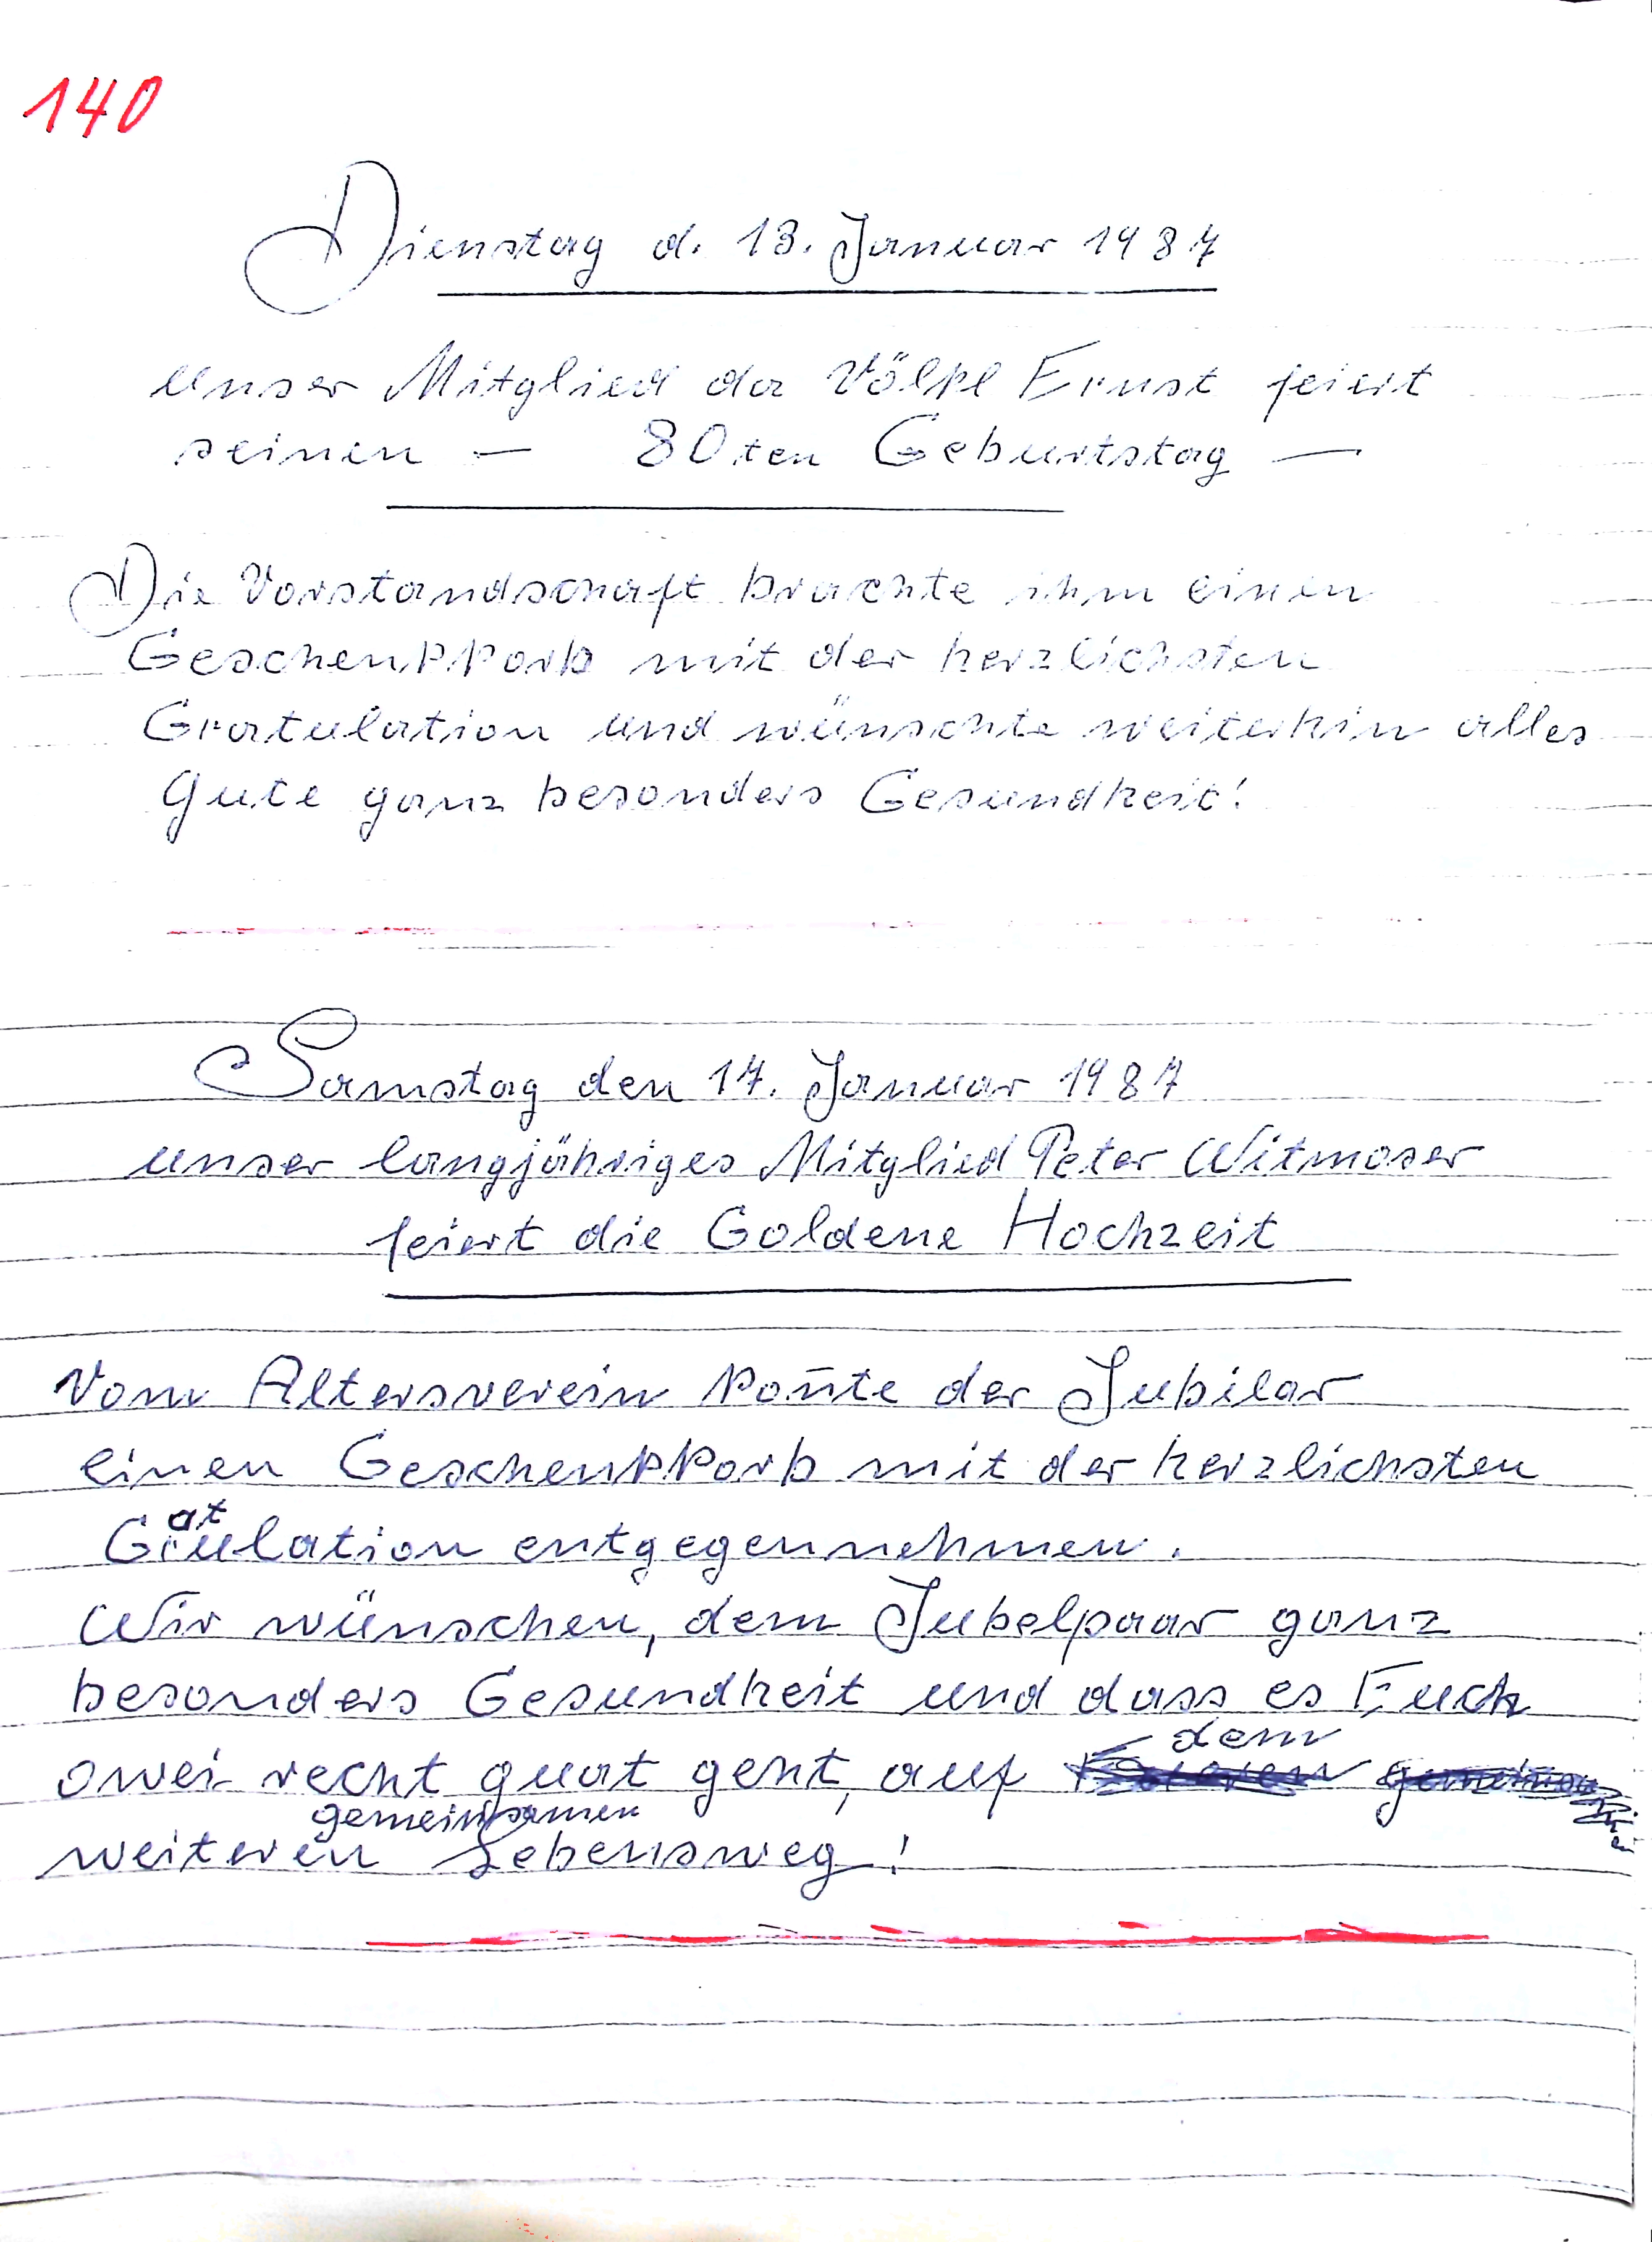 140
Dienstag d. 13. Januar 1987
unser Mitglied da Völkl Ernst feiert
seinen — 80ten Geburtstag —
Die Vorstandschaft brachte ihm einen
Geschenkkorb mit der herzlichsten
Gratulation und wünschte weiterhin alles
Gute ganz besonders Gesundheit!
Samstag den 17. Januar 1987
unser langjähriges Mitglied Peter Witmoser
feiert die Goldene Hochzeit
Vom Altersverein kon̄te der Jubilar
einen Geschenkkorb mit der herzlichsten
Gratulation entgegennehmen.
Wir wünschen, dem Jubelpaar ganz
besonders Gesundheit und dass es Euch
zwei recht guat geht, auf dem
weiteren gemeinsamen Lebensweg!